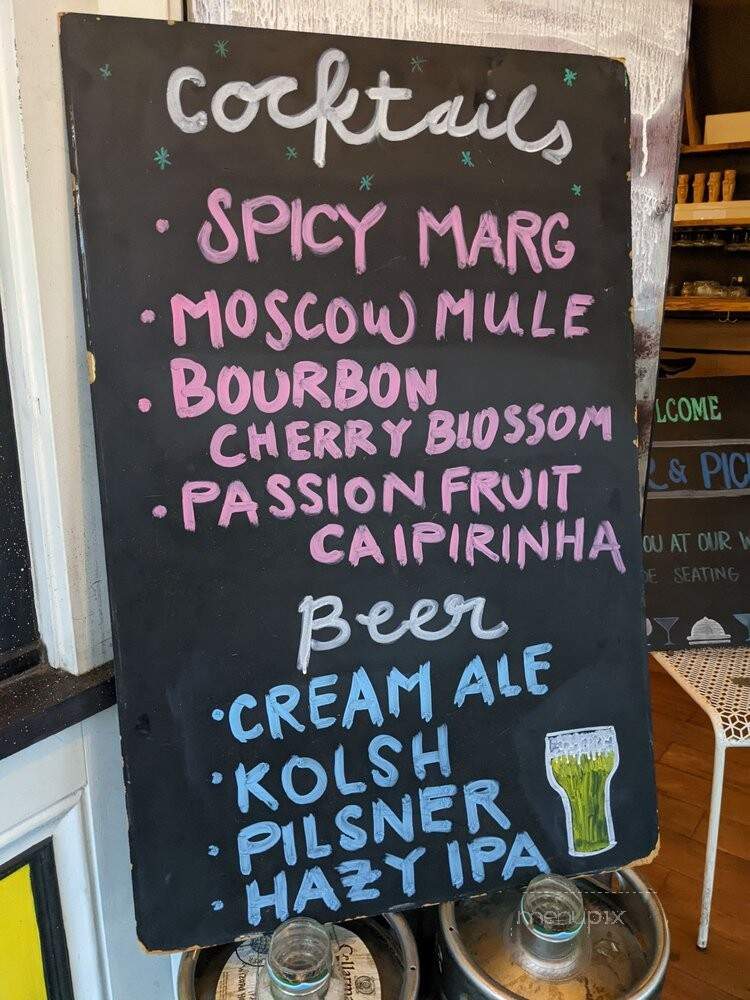 Cocktails
• SPICY MARG
• MOSCOW MULE
• BOURBON
CHERRY BLOSSOM
• PASSION FRUIT
CAIPIRINHA
Beer
• CREAM ALE
• KOLSH
• PILSNER
• HAZY IPA
LCOME
& PIC
OU AT OUR W
SEATING
menupix